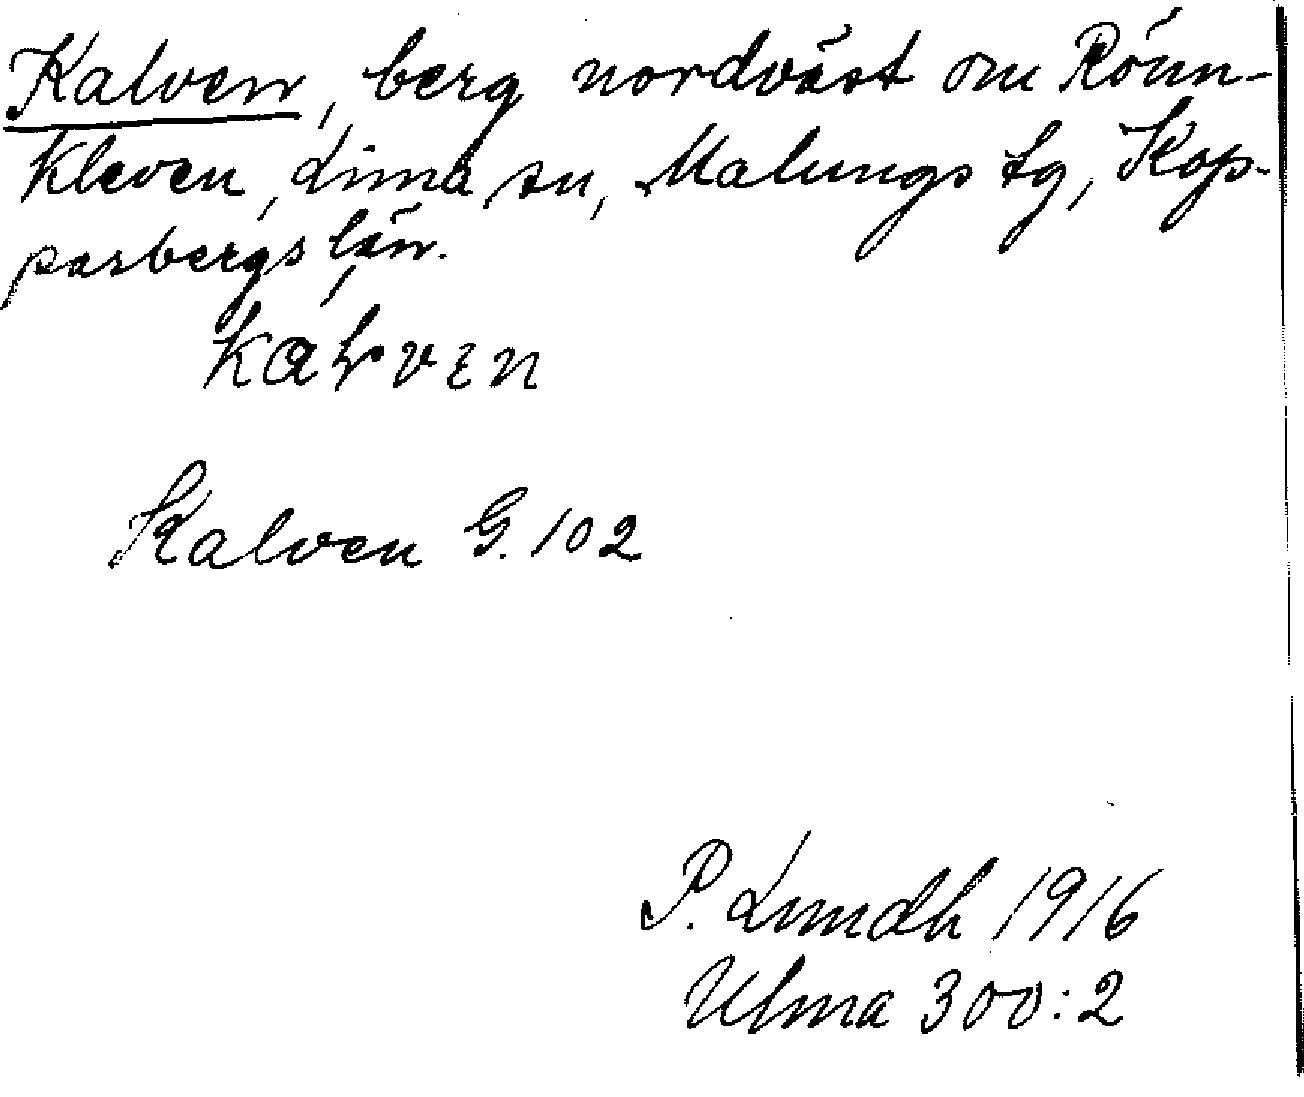 Kalven, berg nordväst om Rönn-
kleven, Lima sn, Malungs tg, Kop-
parbergs län.
Kalven G. 102
P. Lundh 1916
Ulma 300:2